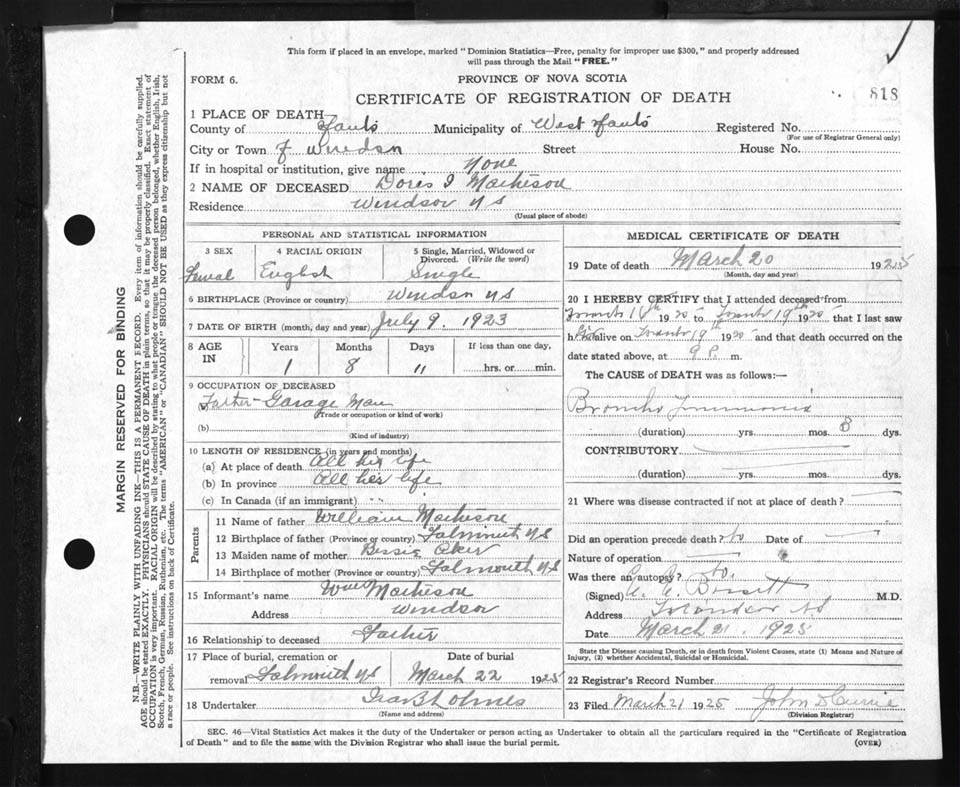 This form if placed in an envelope, marked "Dominion Statistics—Free, penalty for improper use $300," and properly addressed
will pass through the Mail "FREE."
FORM 6.
PROVINCE OF NOVA SCOTIA
CERTIFICATE OF REGISTRATION OF DEATH
818
1 PLACE OF DEATH
County of Hants Municipality of West Hants Registered No.
(For use of Registrar General only)
City or Town of Windsor Street House No.
If in hospital or institution, give name None
2 NAME OF DECEASED Doris I Matheson
Residence Windsor NS
(Usual place of abode)
PERSONAL AND STATISTICAL INFORMATION
3 SEX 4 RACIAL ORIGIN 5 Single, Married, Widowed or
Divorced. (Write the word)
Femal English Single
6 BIRTHPLACE (Province or country) Windsor NS
7 DATE OF BIRTH (month, day and year) July 9. 1923
8 AGE IN Years Months Days If less than one day,
1 8 11 hrs. or min.
9 OCCUPATION OF DECEASED
Father-Garage Man
(Trade or occupation or kind of work)
(b)
(Kind of industry)
10 LENGTH OF RESIDENCE (in years and months)
(a) At place of death All her life
(b) In province All her life
(c) In Canada (if an immigrant)
Parents
11 Name of father William Matheson
12 Birthplace of father (Province or country) Falmouth NS
13 Maiden name of mother Bessie Aker
14 Birthplace of mother (Province or country) Falmouth NS
15 Informant's name Wm Matheson
Address Windsor
16 Relationship to deceased Father
17 Place of burial, cremation or Date of burial
removal Falmouth NS March 22 1925
18 Undertaker Ira B Holmes
(Name and address)
MEDICAL CERTIFICATE OF DEATH
19 Date of death March 20 1925
(Month, day and year)
20 I HEREBY CERTIFY that I attended deceased from
to 19th that I last saw
h alive on 19th and that death occurred on the
date stated above, at 9 P. m.
The CAUSE of DEATH was as follows:—
Broncho Pneumonia
(duration) yrs. mos. 8 dys.
CONTRIBUTORY
(duration) yrs. mos. dys.
21 Where was disease contracted if not at place of death?
Did an operation precede death? No Date of
Nature of operation
Was there an autopsy? No.
(Signed) M.D.
Address Windsor NS
Date March 21. 1925
State the Disease causing Death, or in death from Violent Causes, state (1) Means and Nature of
Injury, (2) whether Accidental, Suicidal or Homicidal.
22 Registrar's Record Number
23 Filed March 21 1925 John D Currie
(Division Registrar)
SEC. 46—Vital Statistics Act makes it the duty of the Undertaker or person acting as Undertaker to obtain all the particulars required in the "Certificate of Registration
of Death" and to file the same with the Division Registrar who shall issue the burial permit. (OVER)
MARGIN RESERVED FOR BINDING
N.B.—WRITE PLAINLY WITH UNFADING INK—THIS IS A PERMANENT RECORD. Every item of information should be carefully supplied.
AGE should be stated EXACTLY. PHYSICIANS should STATE CAUSE OF DEATH in plain terms, so that it may be properly classified. Exact statement of
OCCUPATION is very important. RACIAL ORIGIN will be described by stating to what people or tongue the deceased person belonged, whether English, Irish,
Scotch, French, German, Russian, Ruthenian, etc. The terms "AMERICAN" or "CANADIAN" SHOULD NOT BE USED as they express citizenship but not
a race or people. See instructions on back of Certificate.